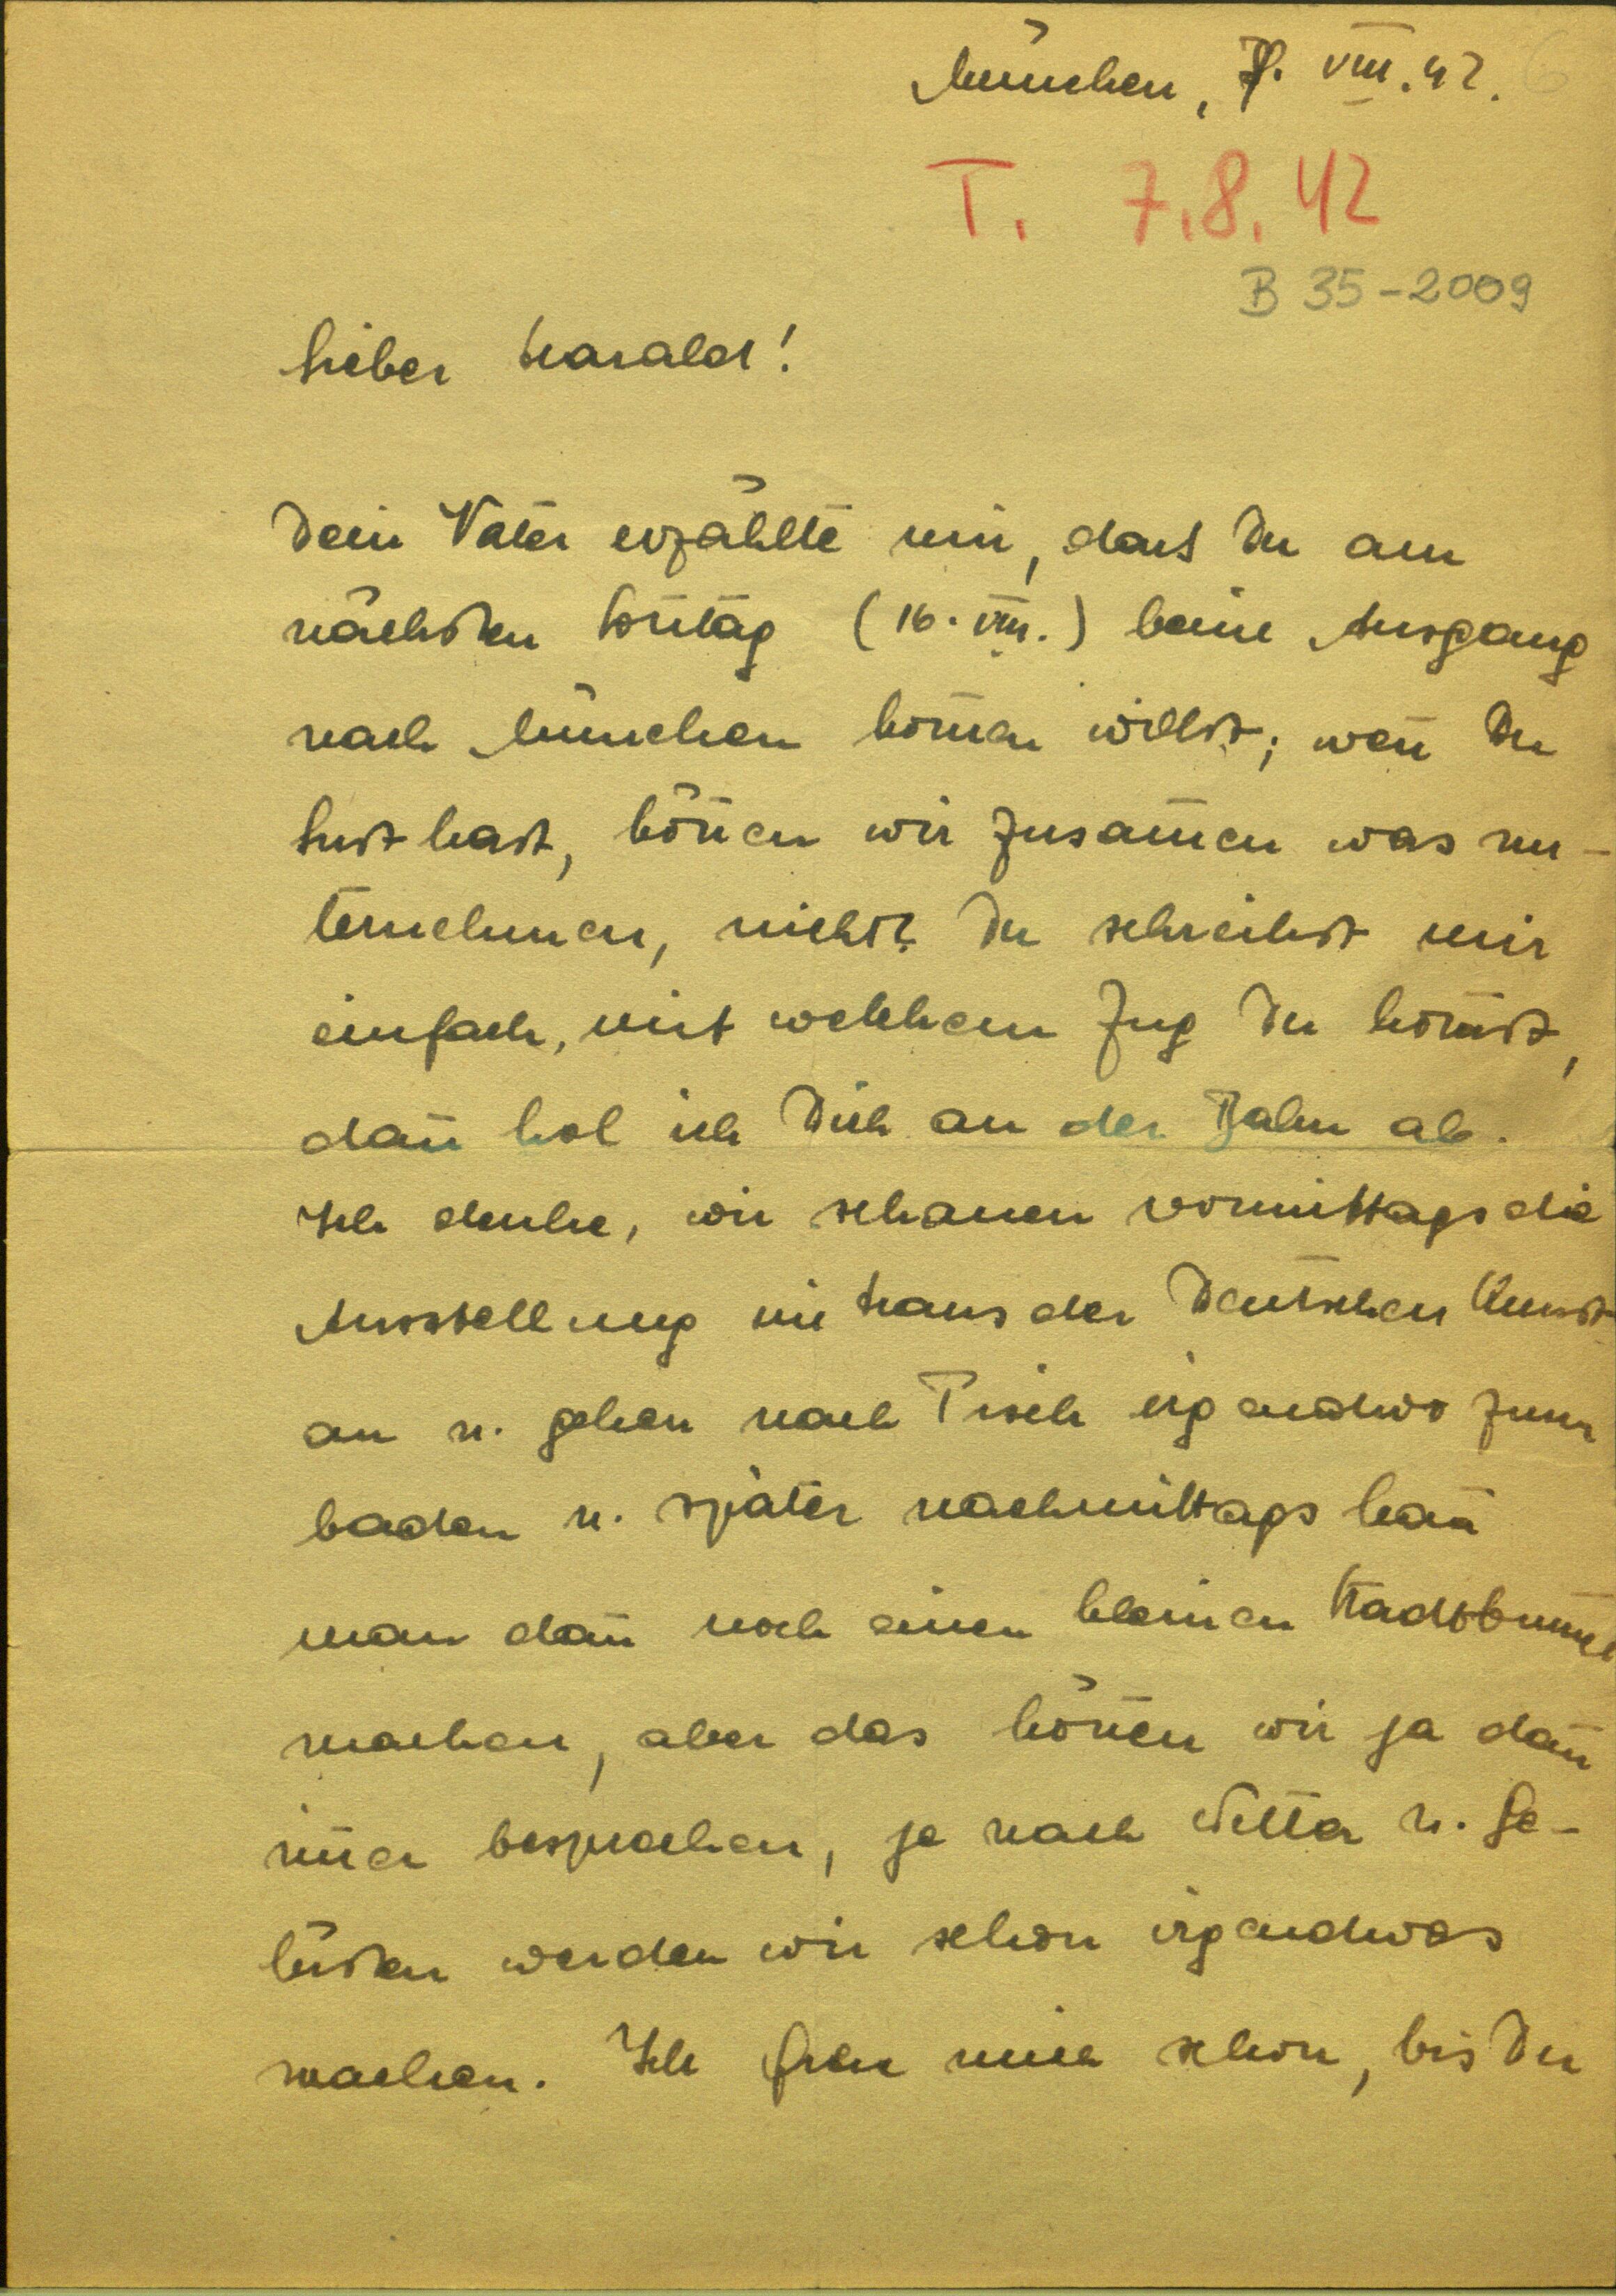 München, 7. VIII. 42.
T. 7.8.42
B 35-2009
Lieber Harald!
Dein Vater erzählte mir, dass Du am
nächsten Soñtag (16. VIII.) beim Ausgang
nach München kom̄en willst; weñ Du
Lust hast, köñen wir zusam̄en was un-
ternehmen, nicht? Du schreibst mir
einfach, mit welchem Zug Du kom̄st,
dañ hol ich Dich an der Bahn ab.
Ich denke, wir schauen vormittags die
Ausstellung im Haus der Deutschen Kunst
an u. gehen nach Tisch irgendwo zum
baden u. später nachmittags kañ
man dañ noch einen kleinen Stadtbummel
machen, aber das köñen wir ja dañ
im̄er besprechen, je nach Wetter u. Ge-
lüsten werden wir schon irgendwas
machen. Ich freu mich schon, bis Du